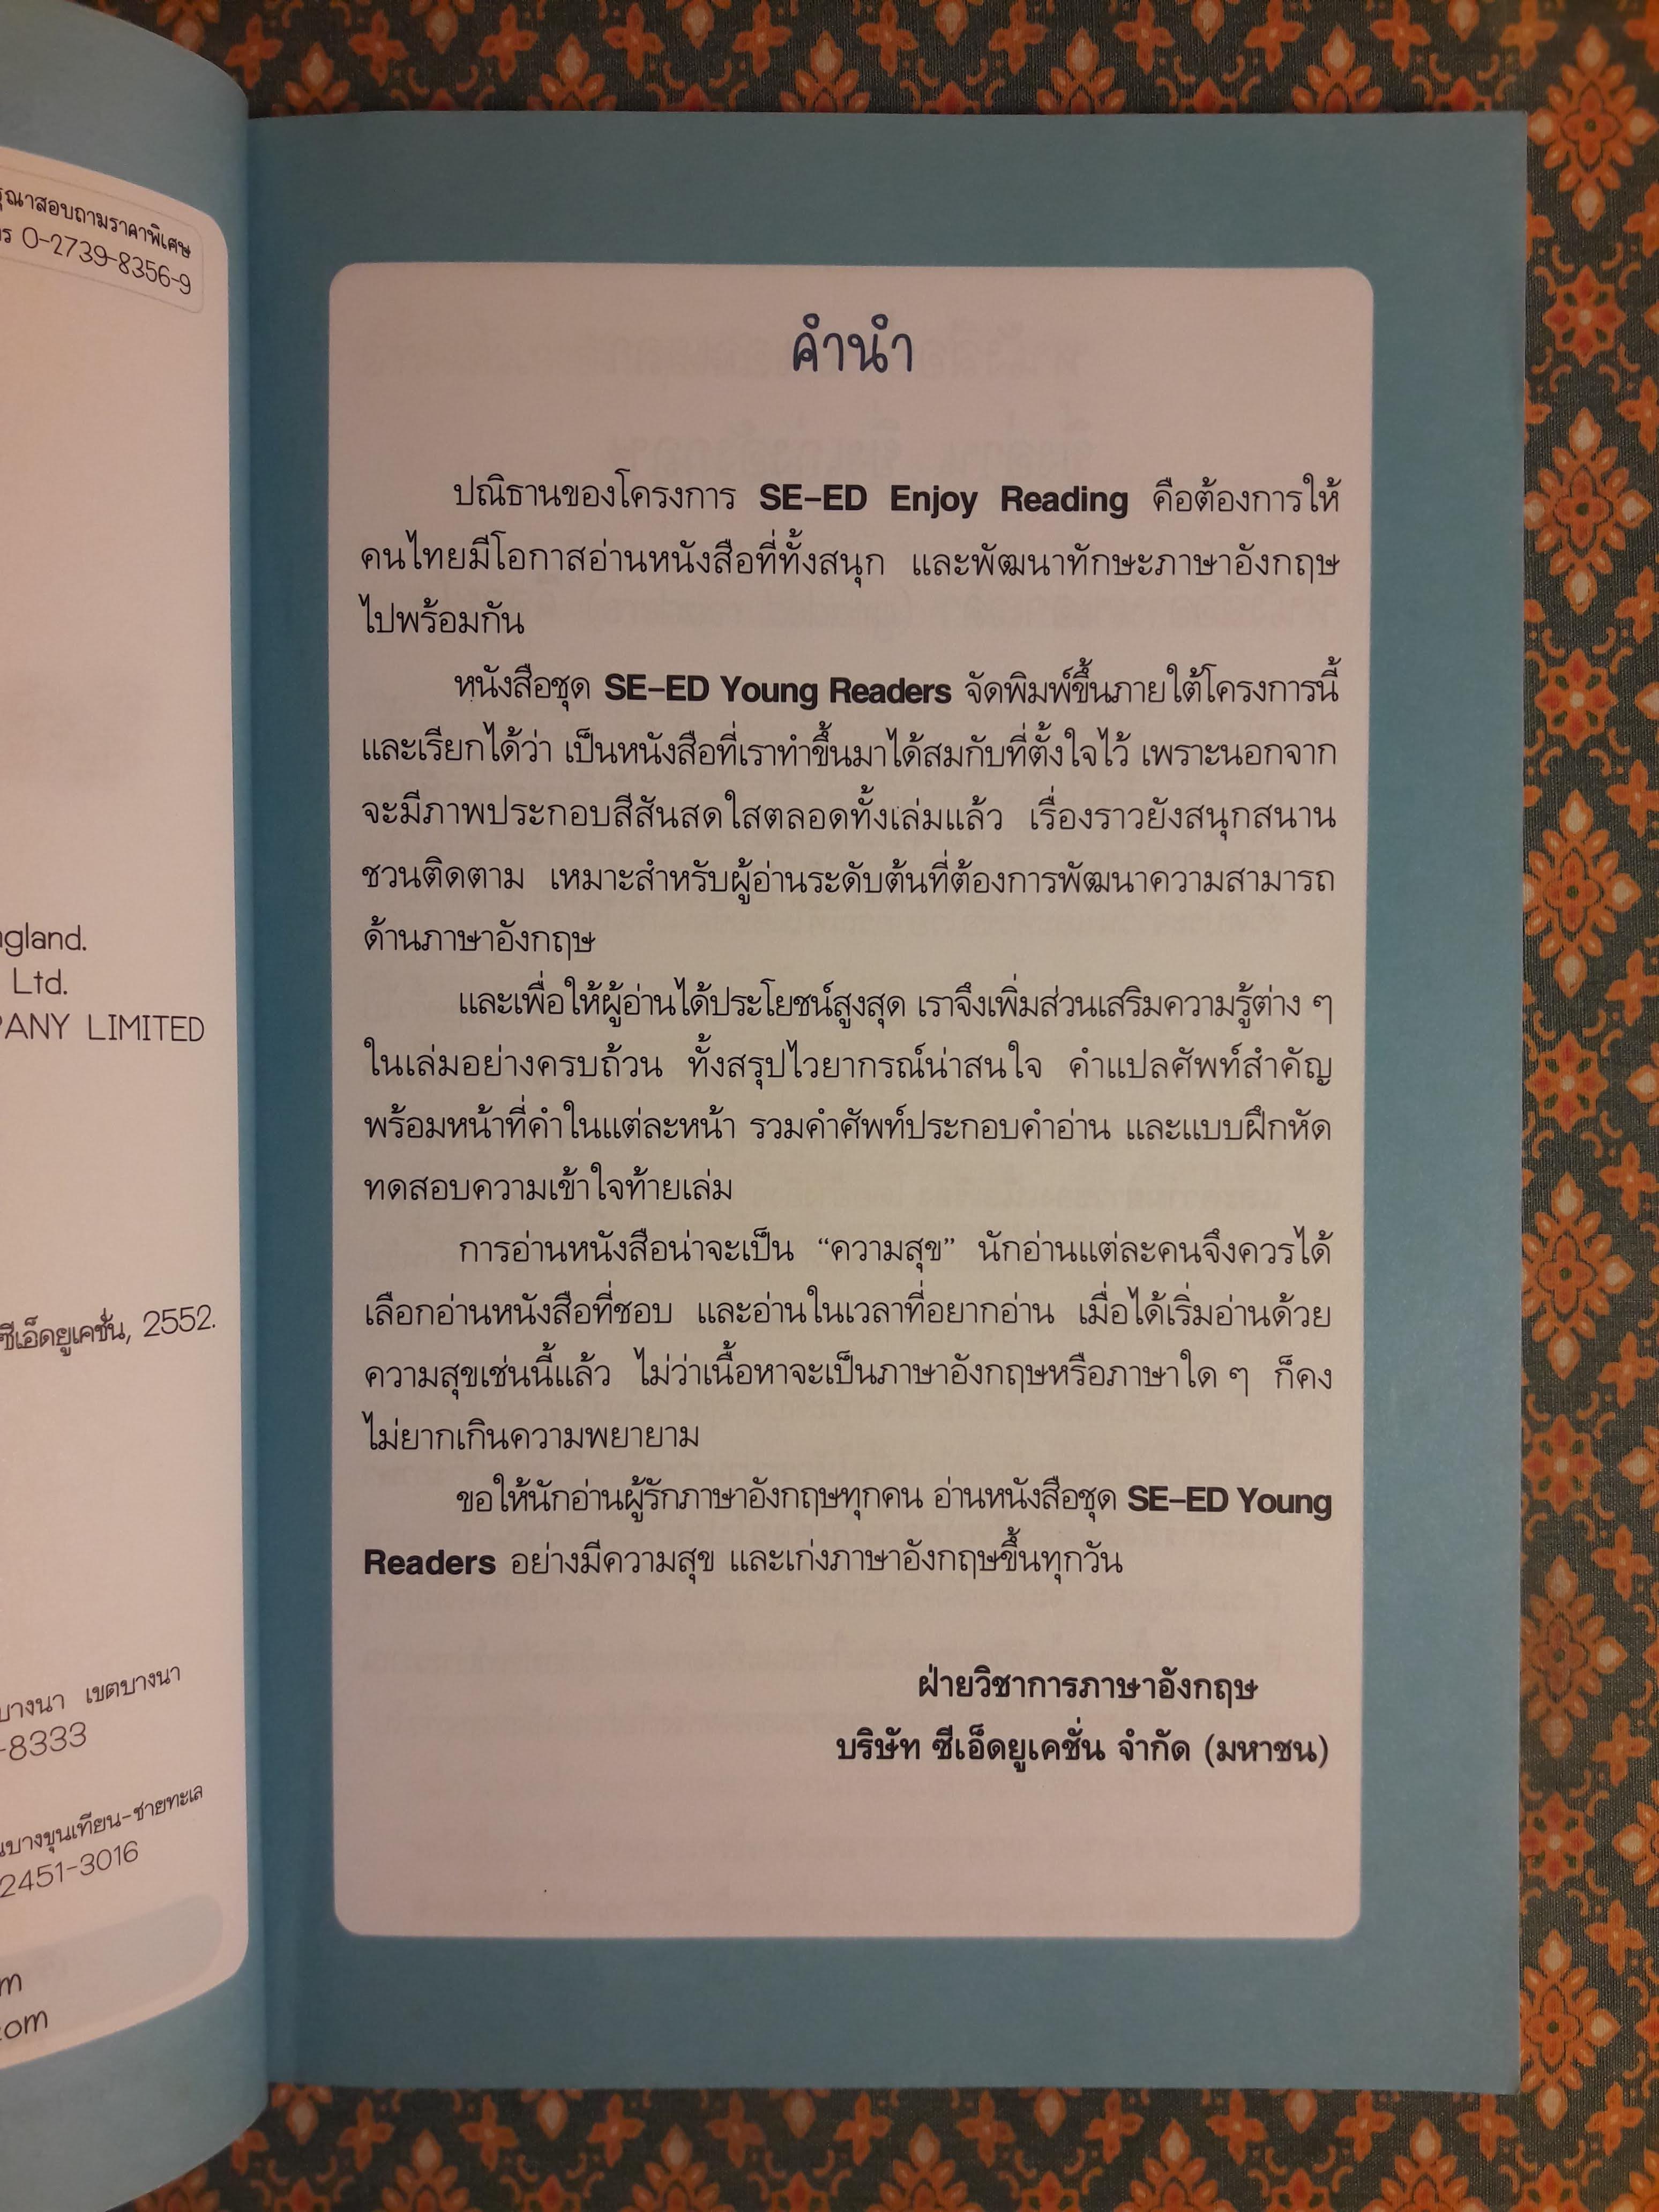 สอบถามราคาพิเศษ
0-2739-8356-9
Ltd.
LIMITED
ซีเอ็ดยูเคชั่น, 2552.
บางนา เขตบางนา
-8333
บางขุนเทียน-ชายทะเล
2451-3016
คำนำ
ปณิธานของโครงการ SE-ED Enjoy Reading คือต้องการให้
คนไทยมีโอกาสอ่านหนังสือที่ทั้งสนุก และพัฒนาทักษะภาษาอังกฤษ
ไปพร้อมกัน
หนังสือชุด SE-ED Young Readers จัดพิมพ์ขึ้นภายใต้โครงการนี้
และเรียกได้ว่า เป็นหนังสือที่เราทำขึ้นมาได้สมกับที่ตั้งใจไว้ เพราะนอกจาก
จะมีภาพประกอบสีสันสดใสตลอดทั้งเล่มแล้ว เรื่องราวยังสนุกสนาน
ชวนติดตาม เหมาะสำหรับผู้อ่านระดับต้นที่ต้องการพัฒนาความสามารถ
ด้านภาษาอังกฤษ
และเพื่อให้ผู้อ่านได้ประโยชน์สูงสุด เราจึงเพิ่มส่วนเสริมความรู้ต่าง ๆ
ในเล่มอย่างครบถ้วน ทั้งสรุปไวยากรณ์น่าสนใจ คำแปลศัพท์สำคัญ
พร้อมหน้าที่คำในแต่ละหน้า รวมคำศัพท์ประกอบคำอ่าน และแบบฝึกหัด
ทดสอบความเข้าใจท้ายเล่ม
การอ่านหนังสือน่าจะเป็น “ความสุข” นักอ่านแต่ละคนจึงควรได้
เลือกอ่านหนังสือที่ชอบ และอ่านในเวลาที่อยากอ่าน เมื่อได้เริ่มอ่านด้วย
ความสุขเช่นนี้แล้ว ไม่ว่าเนื้อหาจะเป็นภาษาอังกฤษหรือภาษาใด ๆ ก็คง
ไม่ยากเกินความพยายาม
ขอให้นักอ่านผู้รักภาษาอังกฤษทุกคน อ่านหนังสือชุด SE-ED Young
Readers อย่างมีความสุข และเก่งภาษาอังกฤษขึ้นทุกวัน
ฝ่ายวิชาการภาษาอังกฤษ
บริษัท ซีเอ็ดยูเคชั่น จำกัด (มหาชน)